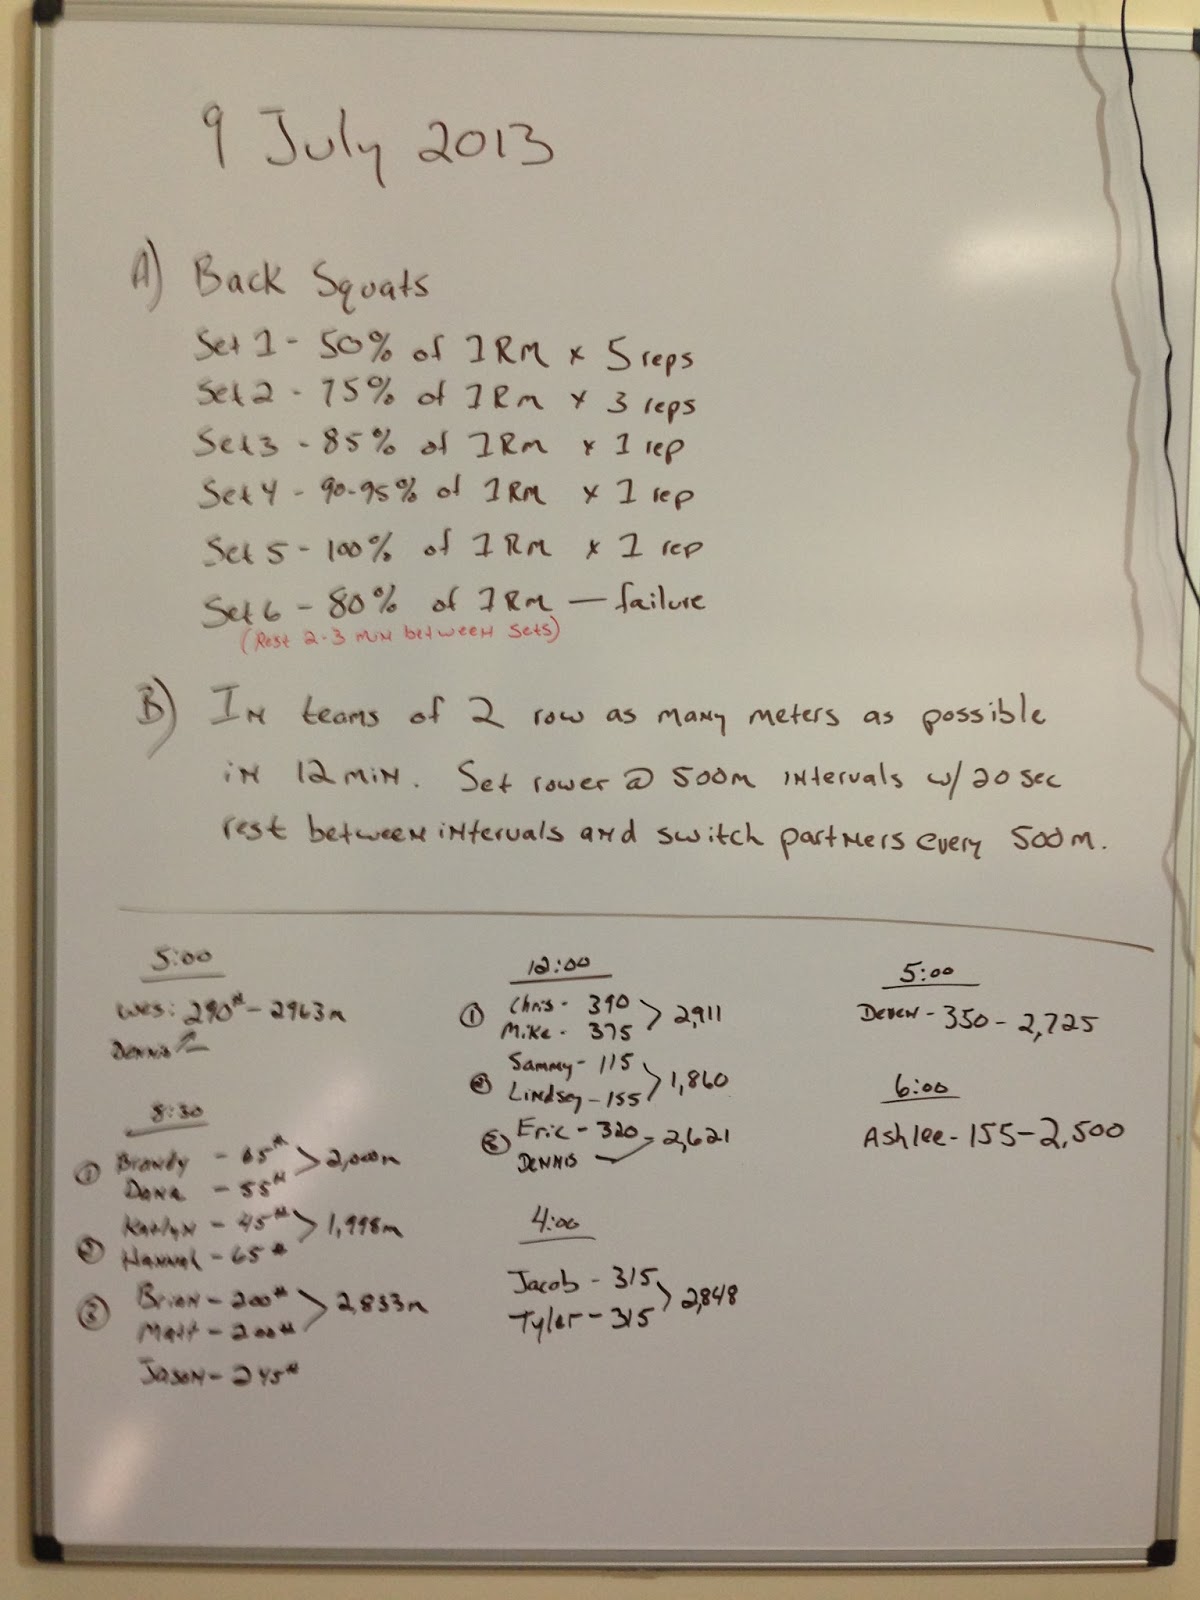 9 July 2013
A) Back Squats
Set 1 - 50% of 1RM x 5 reps
Set 2 - 75% of 1RM x 3 reps
Set 3 - 85% of 1RM x 1 rep
Set 4 - 90-95% of 1RM x 1 rep
Set 5 - 100% of 1RM x 1 rep
Set 6 - 80% of 1RM — failure
(Rest 2-3 min between sets)
B) In teams of 2 row as many meters as possible
in 12 min. Set rower @ 500m intervals w/ 20 sec
rest between intervals and switch partners every 500m.
5:00
Wes: 290# - 2963m
Dennis
8:30
① Brandy - 65# > 2,000m
Dana - 55#
② Katlyn - 45# > 1,998m
Hannah - 65#
③ Brian - 200# > 2,833m
Matt - 200#
Jason - 245#
12:00
① Chris - 390 > 2,911
Mike - 375
② Sammy - 115 > 1,860
Lindsey - 155
③ Eric - 320 > 2,621
Dennis
4:00
Jacob - 315 > 2,848
Tyler - 315
5:00
Deven - 350 - 2,725
6:00
Ashlee - 155 - 2,500